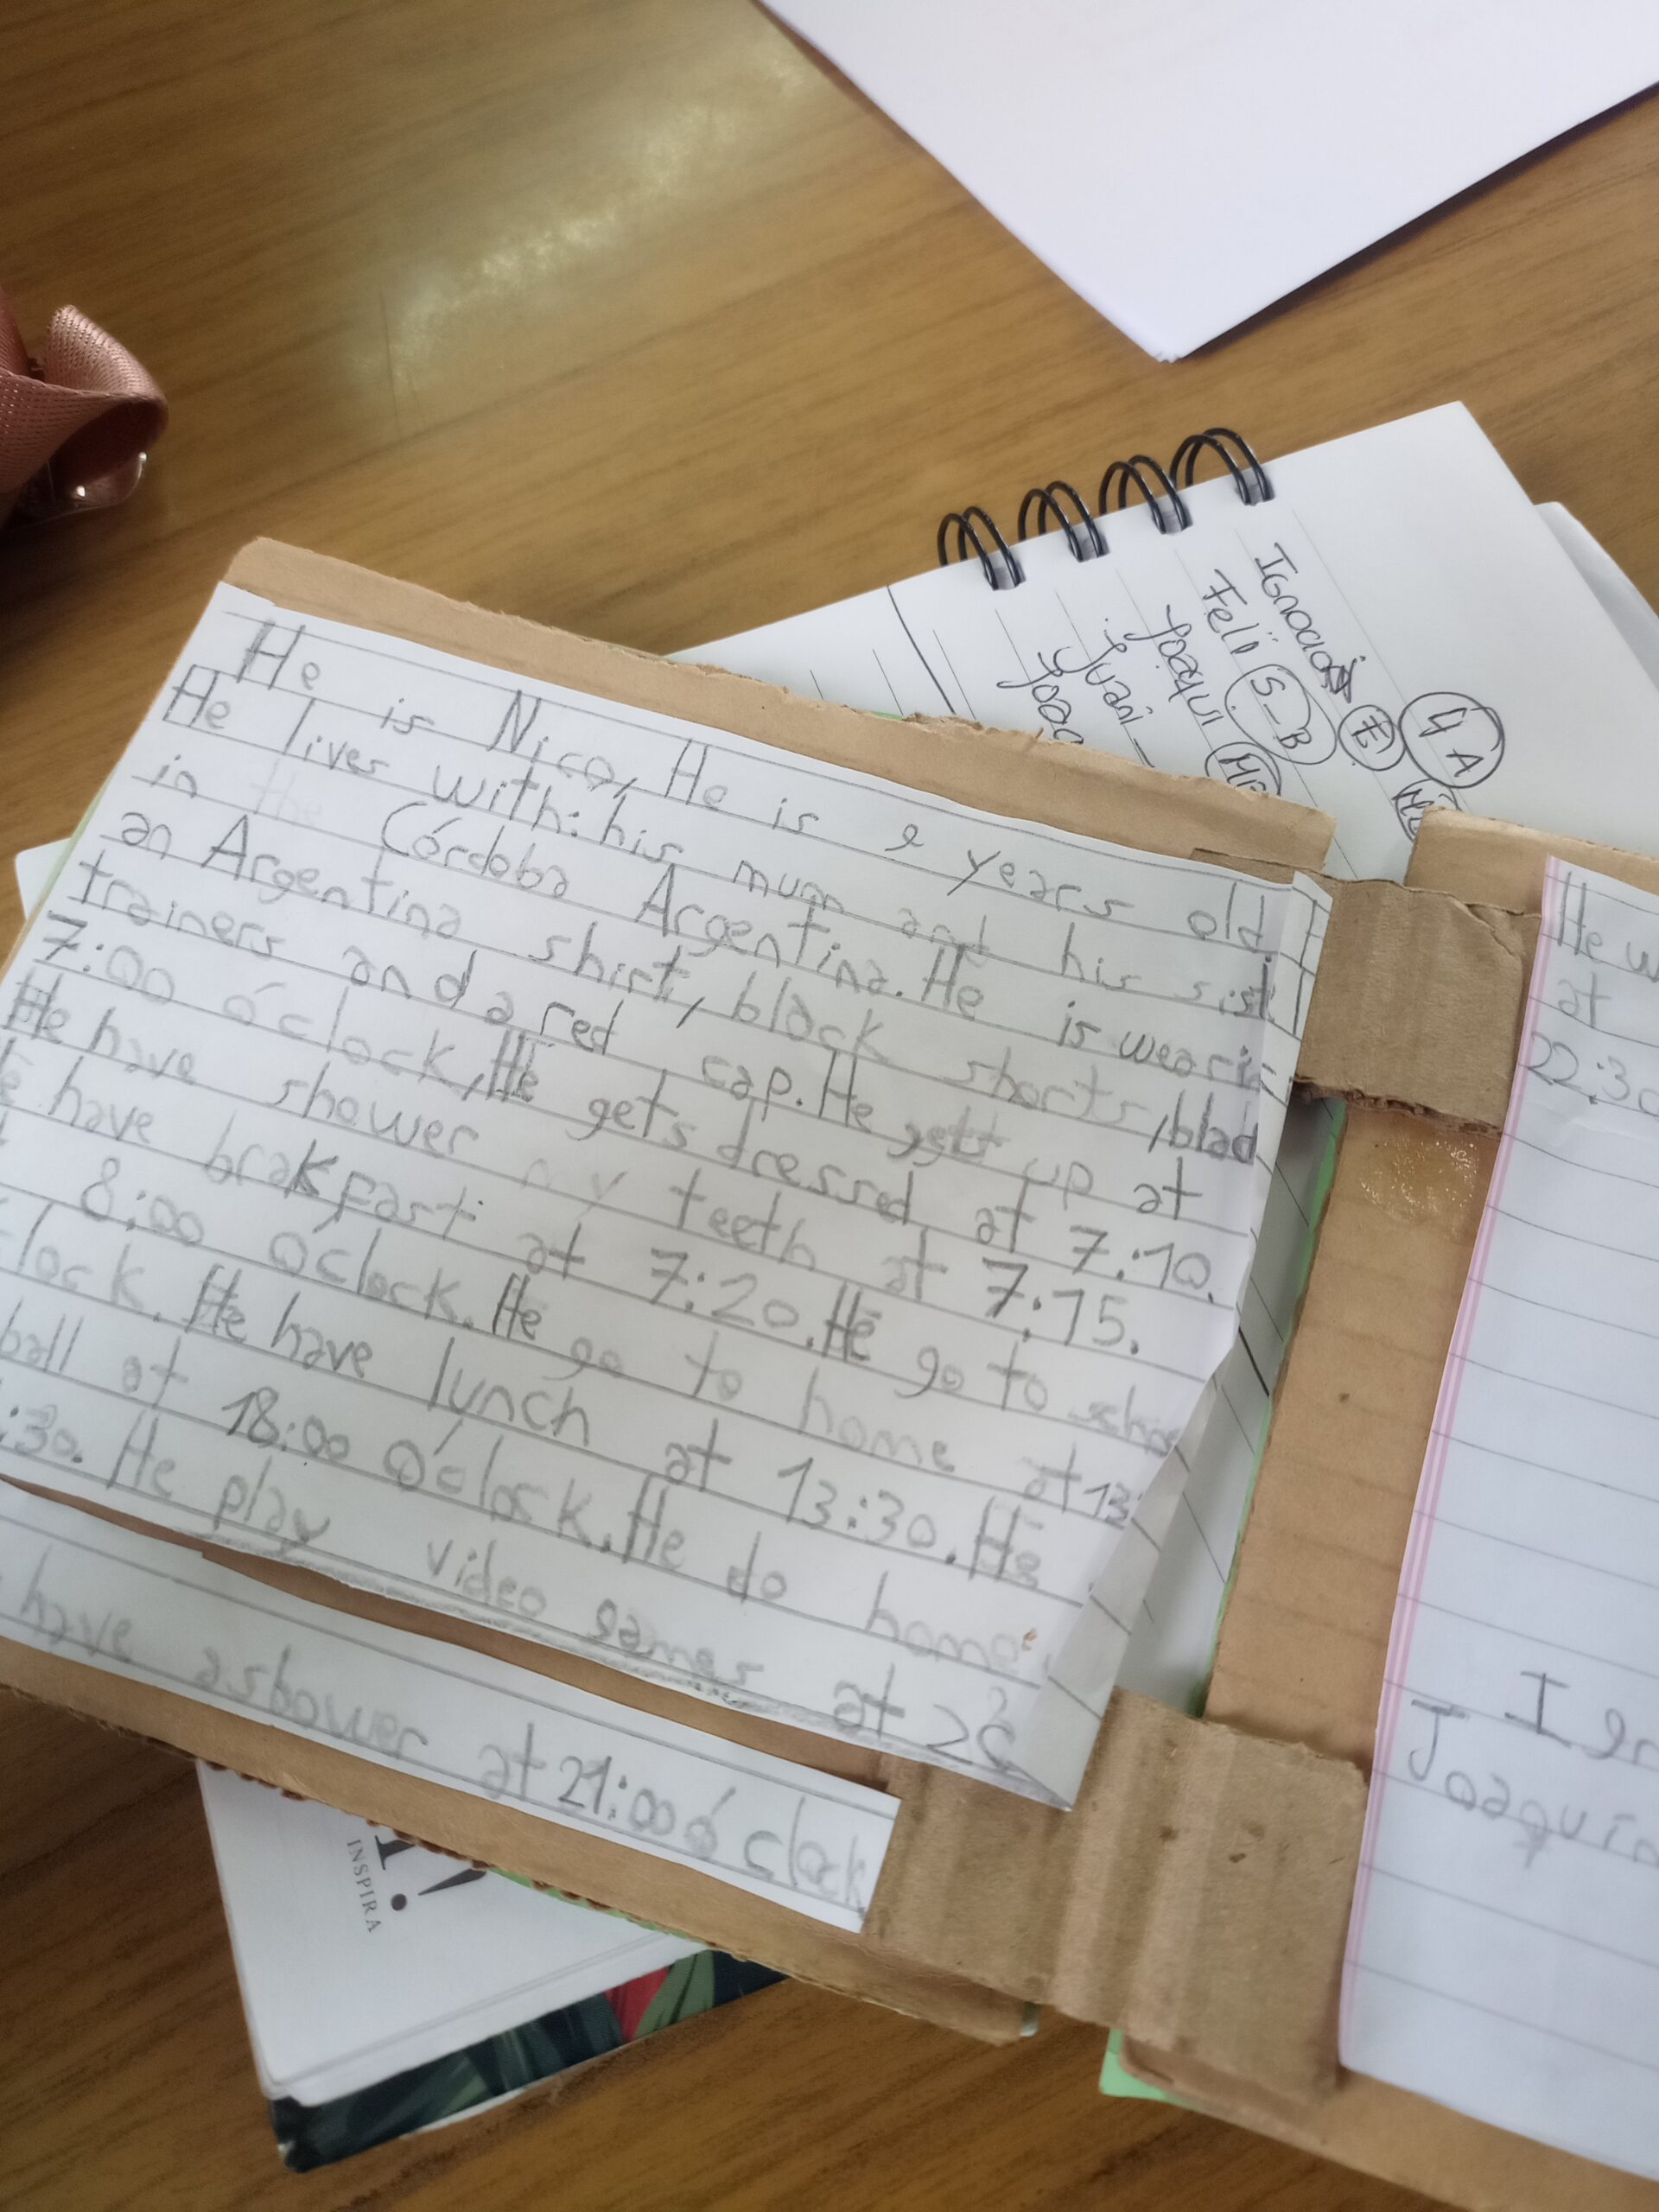 He is Nico, He is 9 years old.
He lives with: his mum and his sist
in Córdoba Argentina. He is wearin
an Argentina shirt, black shorts, blac
trainers and a red cap. He gets up at
7:00 o'clock, He gets dressed at 7:10.
He have shower my teeth at 7:15.
e have brakfast at 7:20. He go to scho
8:00 O'clock. He go to home at 13:
lock. He have lunch at 13:30. He
ball at 18:00 O'clock. He do home
:30. He play video games at
have a shower at 21:00 o'clock
He w
at
22:30
I
Joaquin
4A
Ignacio E
Feli S_B
Joaqui
Juani
Joaq
INSPIRA